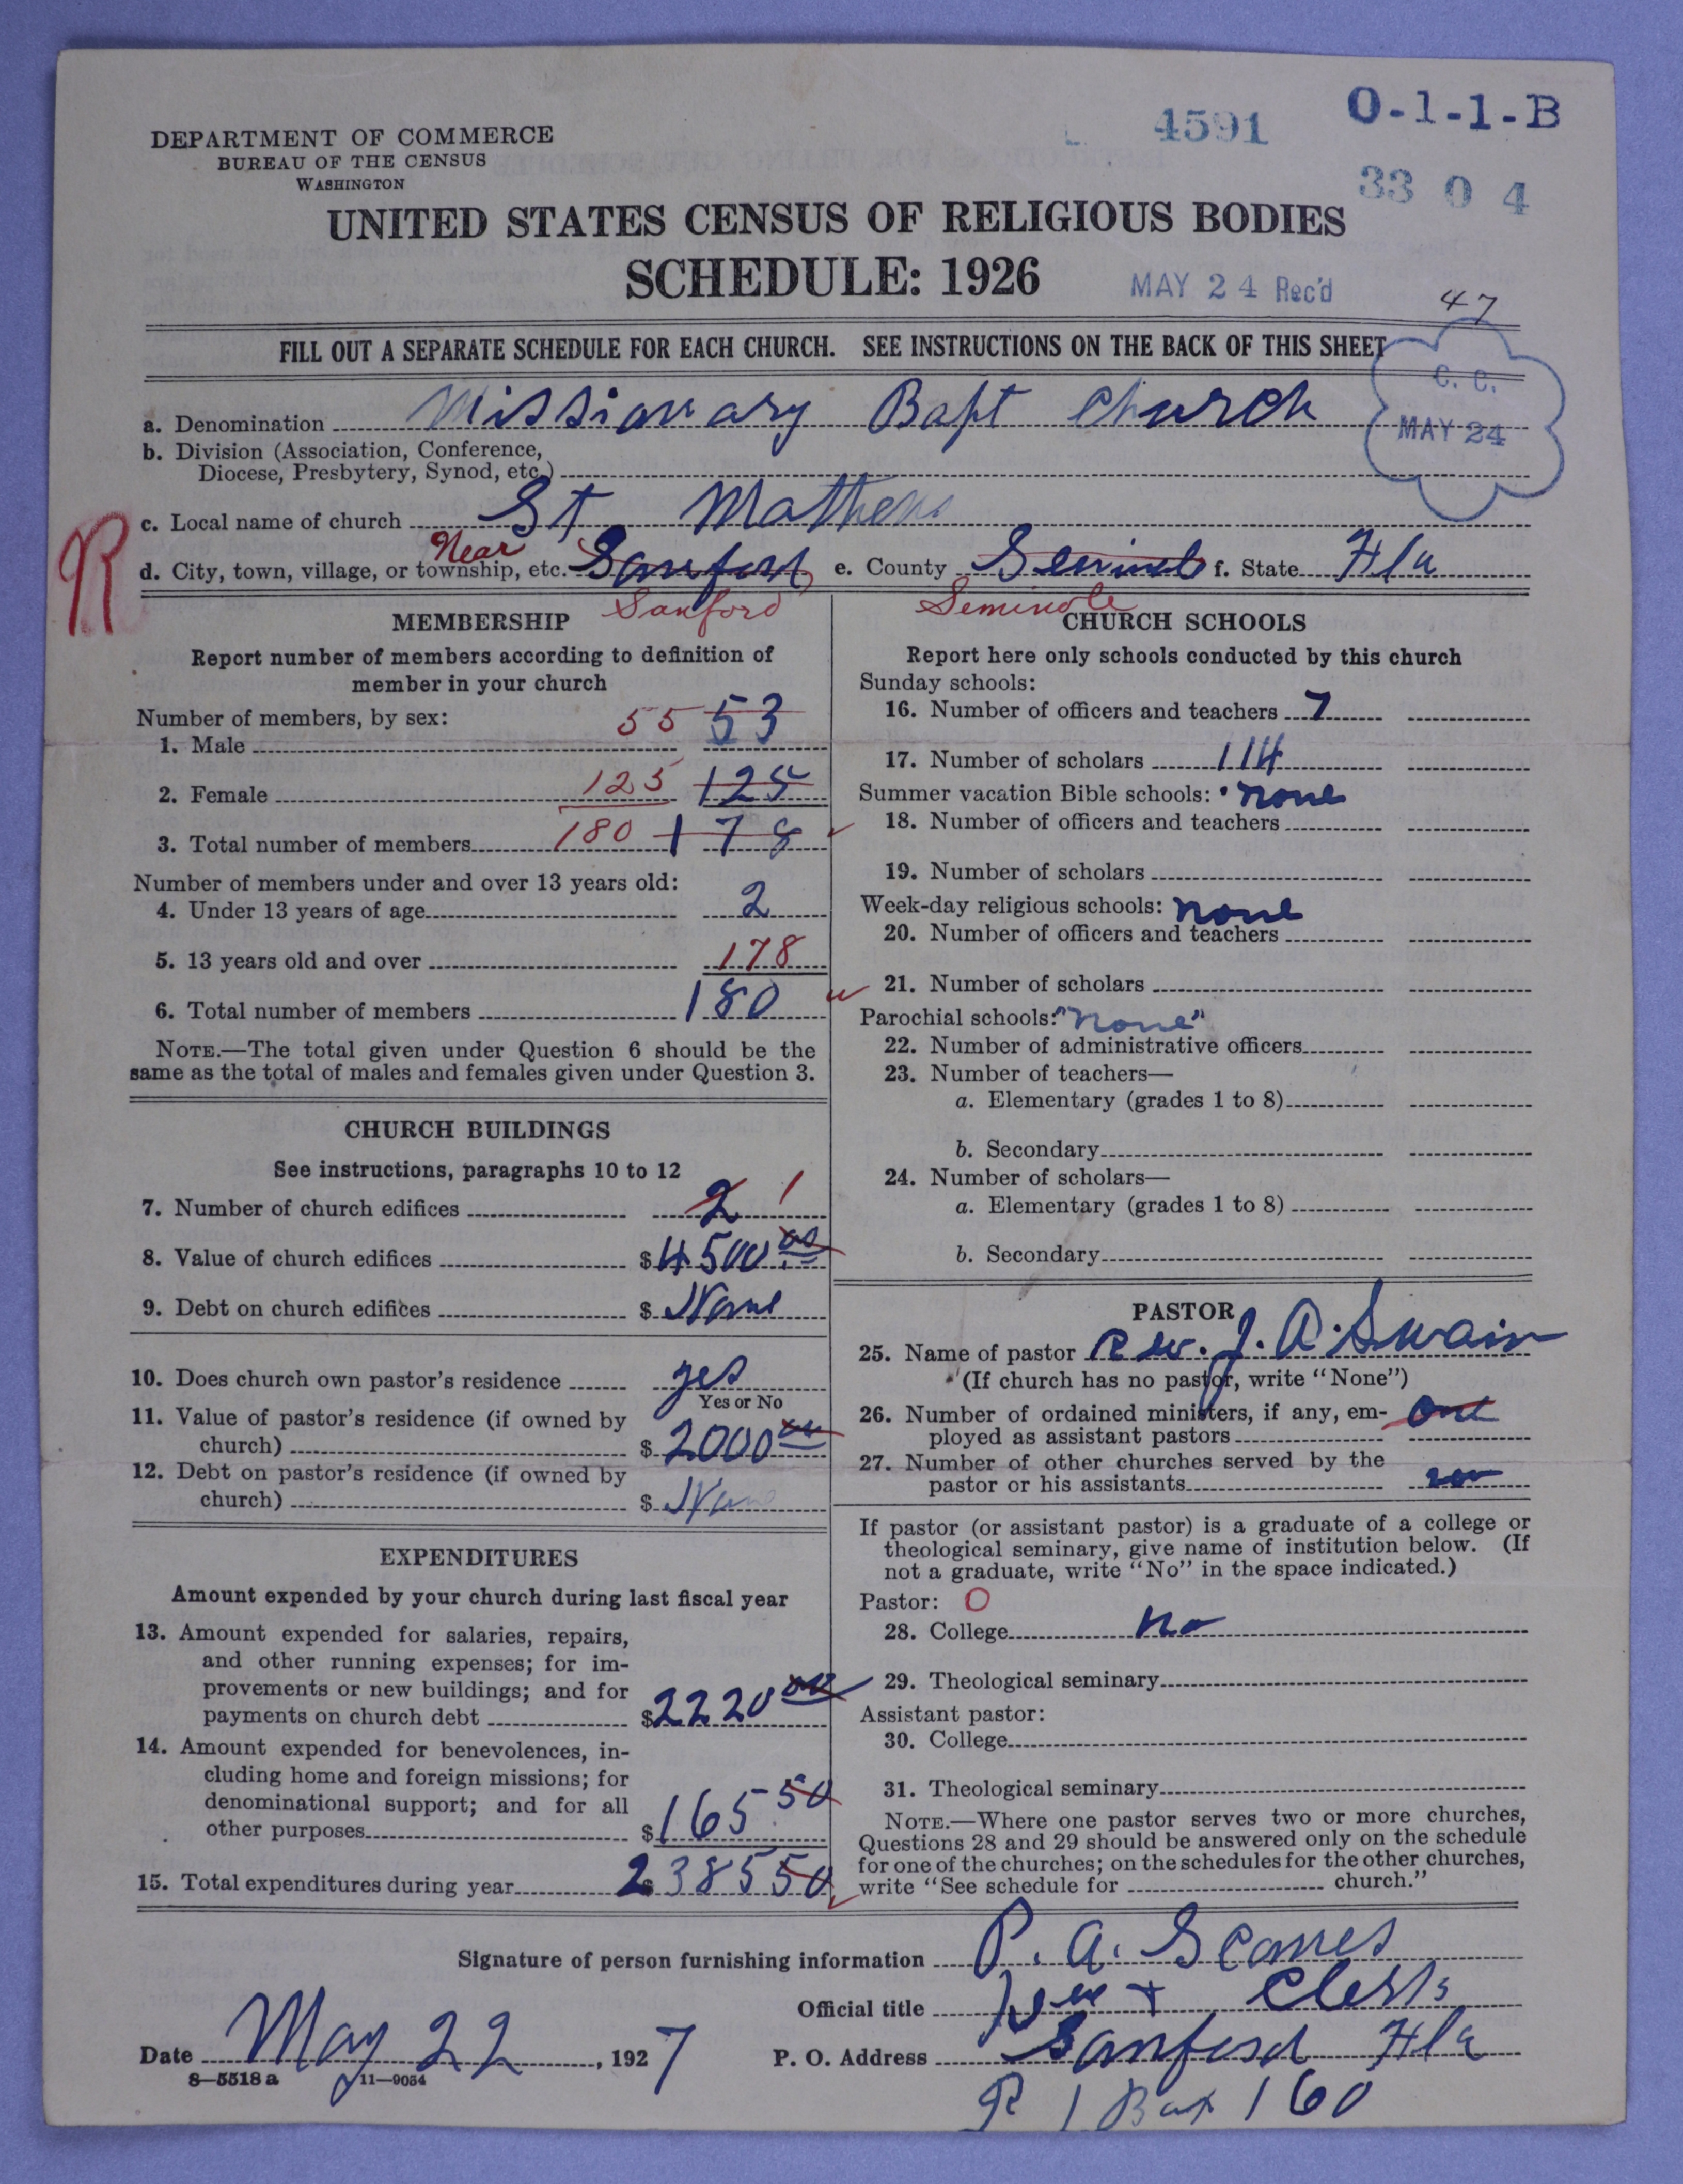 DEPARTMENT OF COMMERCE
BUREAU OF THE CENSUS
WASHINGTON
4591
O-1-1-B
33 0 4
UNITED STATES CENSUS OF RELIGIOUS BODIES
SCHEDULE: 1926
MAY 24 Rec'd
47
FILL OUT A SEPARATE SCHEDULE FOR EACH CHURCH. SEE INSTRUCTIONS ON THE BACK OF THIS SHEET
C. C.
MAY 24
a. Denomination Missionary Bapt Church
b. Division (Association, Conference,
Diocese, Presbytery, Synod, etc.)
c. Local name of church St Mathews
R
Near
d. City, town, village, or township, etc. Sanford e. County Seminole f. State Fla
Sanford Seminole
MEMBERSHIP
Report number of members according to definition of
member in your church
Number of members, by sex:
1. Male 55 53
2. Female 125 125
3. Total number of members 180 178
Number of members under and over 13 years old:
4. Under 13 years of age 2
5. 13 years old and over 178
6. Total number of members 180
NOTE.—The total given under Question 6 should be the
same as the total of males and females given under Question 3.
CHURCH BUILDINGS
See instructions, paragraphs 10 to 12
7. Number of church edifices 2 1
8. Value of church edifices $4500 00
9. Debt on church edifices $ None
10. Does church own pastor's residence yes
Yes or No
11. Value of pastor's residence (if owned by
church) $2000 00
12. Debt on pastor's residence (if owned by
church) $ None
EXPENDITURES
Amount expended by your church during last fiscal year
13. Amount expended for salaries, repairs,
and other running expenses; for im-
provements or new buildings; and for
payments on church debt $2220 00
14. Amount expended for benevolences, in-
cluding home and foreign missions; for
denominational support; and for all
other purposes $165 50
15. Total expenditures during year $2385 50
CHURCH SCHOOLS
Report here only schools conducted by this church
Sunday schools:
16. Number of officers and teachers 7
17. Number of scholars 114
Summer vacation Bible schools: none
18. Number of officers and teachers
19. Number of scholars
Week-day religious schools: none
20. Number of officers and teachers
21. Number of scholars
Parochial schools: "none"
22. Number of administrative officers
23. Number of teachers—
a. Elementary (grades 1 to 8)
b. Secondary
24. Number of scholars—
a. Elementary (grades 1 to 8)
b. Secondary
PASTOR
25. Name of pastor Rev. J. A. Swain
(If church has no pastor, write "None")
26. Number of ordained ministers, if any, em-
ployed as assistant pastors one
27. Number of other churches served by the
pastor or his assistants
If pastor (or assistant pastor) is a graduate of a college or
theological seminary, give name of institution below. (If
not a graduate, write "No" in the space indicated.)
Pastor: O
28. College no
29. Theological seminary
Assistant pastor:
30. College
31. Theological seminary
NOTE.—Where one pastor serves two or more churches,
Questions 28 and 29 should be answered only on the schedule
for one of the churches; on the schedules for the other churches,
write "See schedule for church."
Signature of person furnishing information P. A.
Official title
Date May 22, 1927
P. O. Address Sanford Fla
R 1 Box 160
8—5518 a 11—9054